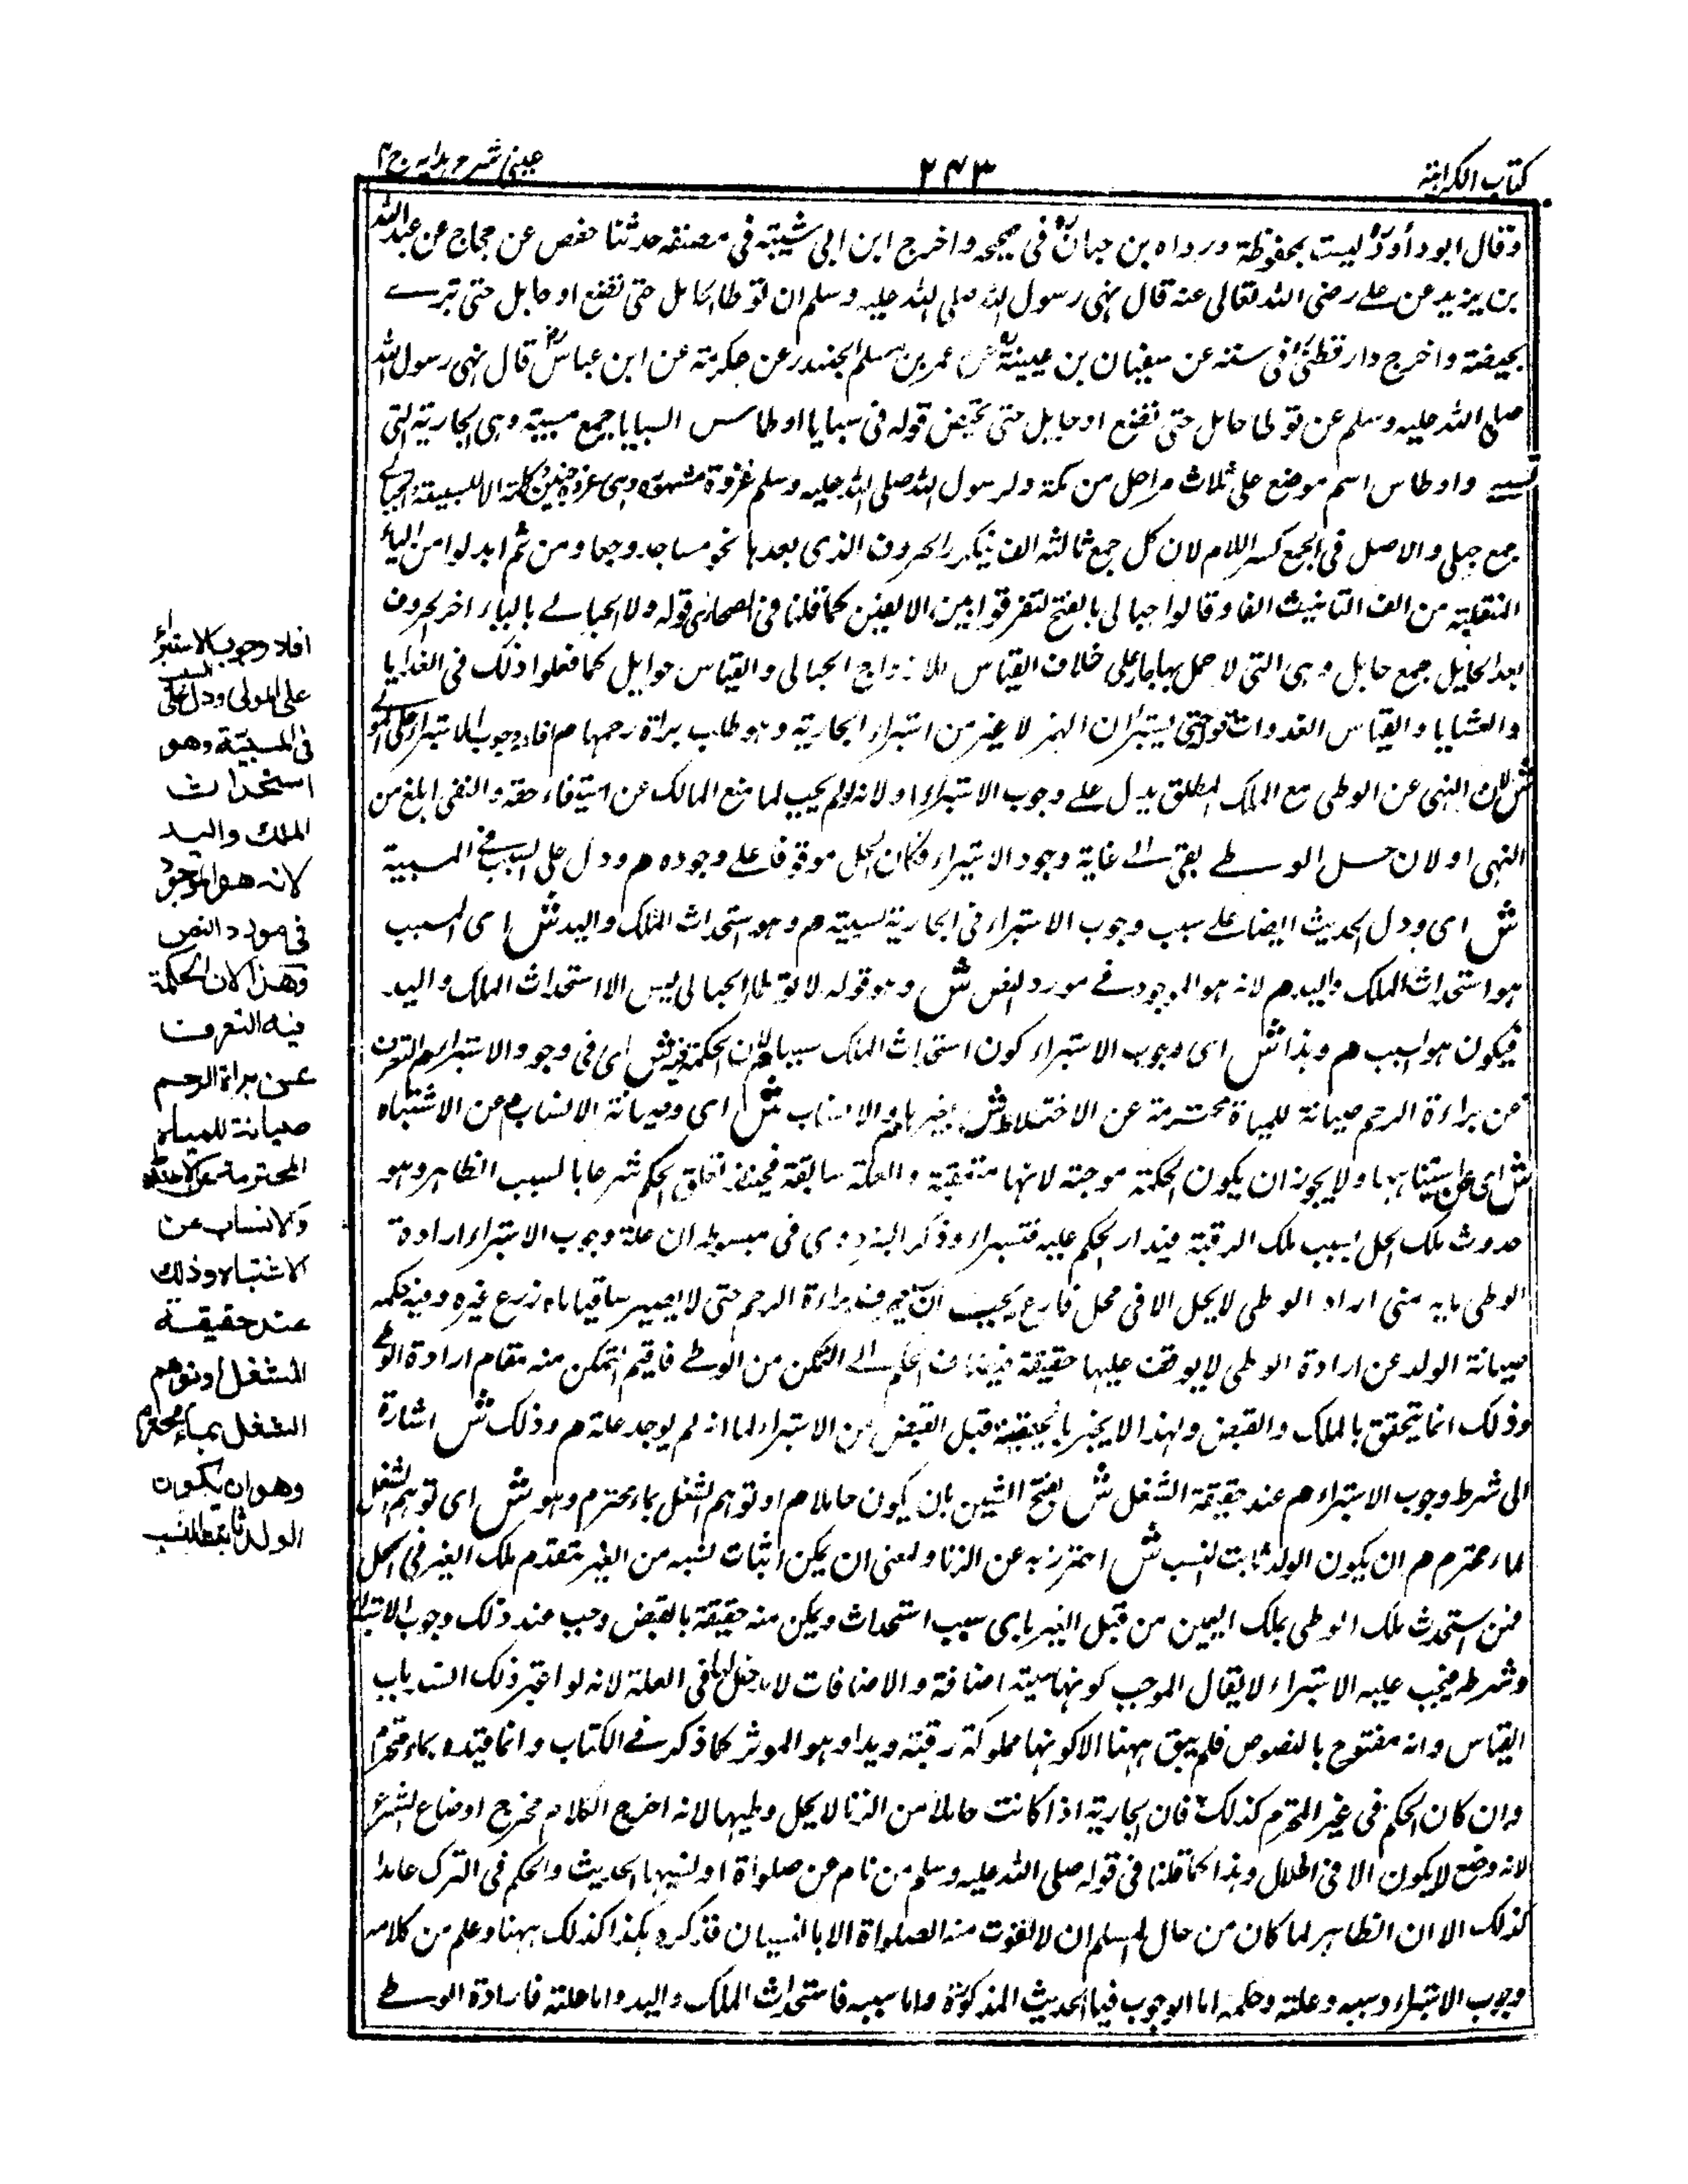 كتاب الكراهية
٢٤٣
عينى شرح هدايه ج ٤
وقال ابو داؤد ليست بمحفوظة ورواه بن حبان فى صحيحه واخرج ابن ابى شيبة فى مصنفه حدثنا حفص عن حجاج عن عبد الله
بن يزيد عن على رضى الله تعالى عنه قال نهى رسول الله صلى الله عليه وسلم ان توطا الحامل حتى تضع او حايل حتى تبرے
بحيضة واخرج دار قطنى فى سننه عن سفيان بن عيينة عن عمر بن مسلم الجندر عن عكرمة عن ابن عباس قال نهى رسول الله
صلى الله عليه وسلم عن توطا حامل حتى تضع او حايل حتى تحيض قوله فى سبايا اوطاس السبايا جمع سبية وهى الجارية التى
تسبى واوطاس اسم موضع على ثلاث مراحل من مكة ولرسول الله صلى الله عليه وسلم غزوة مشهورة وهى غزوة حنين كلمة الا للسبيية الحبالى
جمع حبلى والاصل فى الجمع كسر اللام لان كل جمع ثالثه الف ينكسر الحروف الذى بعدها نحو مساجد وجعافر ثم ابدلوا من الياء
المنقلبة من الف التانيث الفا وقالوا حبالى بالفتح لتفرقوا بين الالفين كما قلنا فى الصحارى قوله ولا الحبالى بالياء اخر الحروف
بعد الحايل جمع حايل وهى التى لا حمل بها جاء على خلاف القياس لازدواج الحبالى والقياس حوايل كما فعلوا ذلك فى الغدايا
والعشايا والقياس الغدوات قوله حتى يستبران الهمز لا غير من استبراء الجارية وهو طلب براة رحمها م افاد وجوب الاستبراء على المولى
ش لان النهى عن الوطى مع الملك المطلق يدل على وجوب الاستبراء او لانه لو لم يجب لما منع المالك عن استيفاء حقه والنفى ابلغ من
النهى او لان حل الوطے بقى الے غاية وجود الاستبراء فكان الحل موقوفا على وجوده م ودل على السبب فى المسبية
ش اى ودل الحديث ايضا على سبب وجوب الاستبراء فى الجارية لسبية م وهو استحداث الملك واليد ش اى السبب
هو استحداث الملك واليد م لانه هو الموجود فے مورد النص ش وهو قوله لا توطا الحبالى ليس الا استحداث الملك واليد
فيكون هو السبب م وهذا ش اى وجوب الاستبراء كون استحداث الملك سببا م لان الحكمة فيه ش اى فى وجود الاستبراء م التعرف
عن براءة الرحم صيانة للمياة محترمة عن الاختلاط ش بغيرها م والانساب ش اى وصيانة الانساب م عن الاشتباه
ش اى عن اشتباهها ولا يجوز ان يكون الحكمة موجبة لانها متعقبة والعلة سابقة فحينئذ تعلق الحكم شرعا بالسبب الظاهر وهو
حدوث ملك الحل بسبب ملك الرقبة فيدار الحكم عليه فتيسيرا وذكر البزدوى فى مبسوطه ان علة وجوب الاستبراء ارادة
الوطى بايه متى اراد الوطى لا يحل الا فى محل فارغ يجب ان يعرف براءة الرحم حتى لا يصير ساقيا ماء زرع غيره وفيه حكمه
صيانة الولد عن ارادة الوطى لا يوقف عليها حقيقة فيضاف الحكم الے التمكن من الوطے فاقيم التمكن منه مقام ارادة الوطے
وذلك انما يتحقق بالملك والقبض ولهذا لا يجتز بالحيضة قبل القبض من الاستبراء لما انه لم يوجد علة م وذلك ش اشارة
الى شرط وجوب الاستبراء م عند حقيقة الشغل ش بفتح الشين بان يكون حاملا م او توهم الشغل بماء محترم وهو ش اى توهم الشغل
بماء محترم م ان يكون الولد ثابت النسب ش احترز به عن الزنا ومعنى ان يمكن اثبات نسبه من الغير بتقدم ملك الغير فى الحل
فمن استحدث ملك الوطى بملك اليمين من قبل الغير باى سبب استحداث ويمكن منه حقيقة بالقبض وجب عند ذلك وجوب الاستبراء
وشرط فيجب عليه الاستبراء لا يقال الموجب كونها سبية اضافة والاضافات لا دخل لها فى العلة لانه لو اعتبر ذلك انسد باب
القياس وانه مفتوح بالنصوص فلم يبق ههنا الا كونها مملوكة رقبة ويدا وهو الموثر كما ذكر فے الكتاب وانما قيده بماء محترم
وان كان الحكم فى غير المحترم كذلك فان الجارية اذا كانت حاملا من الزنا لا يحل وطيها لانه اخرج الكلام مخرج اوضاع الشرع
لانه وضع لا يكون الا فى الحلال وهذا كما قلنا فى قوله صلى الله عليه وسلم من نام عن صلواة او نسيها الحديث والحكم فى الترك عامدا
كذلك الا ان الظاهر لما كان من حال المسلم ان لا تفوت منه الصلواة الا بالنسيان فذكره هكذا كذلك ههنا وعلم من كلامه
وجوب الاستبراء وسببه وعلته وحكمه اما الوجوب فيا الحديث المذكورة واما سببه فاستحداث الملك واليد واما علته فارادة الوطے
افاد وجوب الاستبراء
على المولى ودل على السبب
فى المسبيّة وهو
استحداث
الملك واليد
لانه هو الموجود
فى مورد النص
وهذا لان الحكمة
فيه التعرف
عن براة الرحم
صيانة للمياه
المحترمة عن الاختلاط
والانساب عن
الاشتباه وذلك
عند حقيقة
الشغل او توهم
الشغل بماء محترم
وهو ان يكون
الولد ثابت النسب